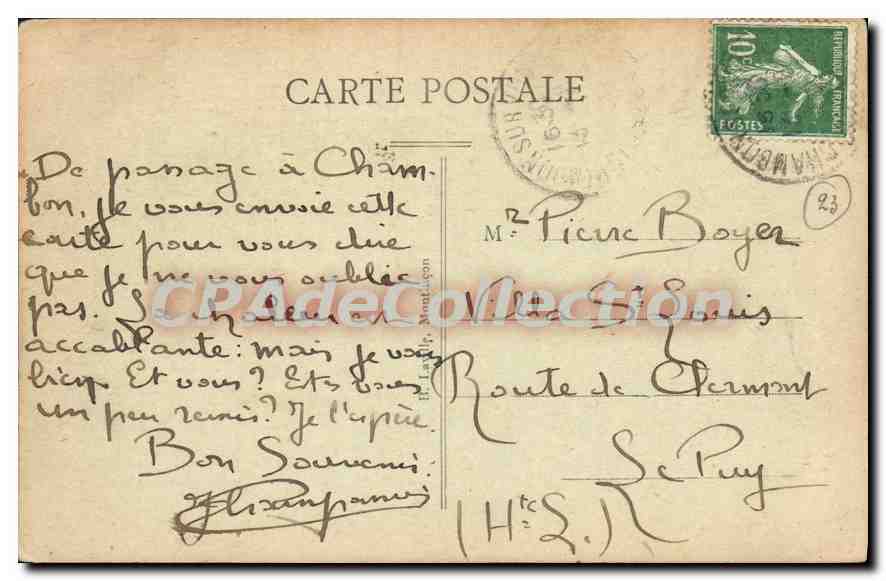 CARTE POSTALE
De passage à Cham-
bon, je vous envoie cette
carte pour vous dire
que je ne vous oublie
pas. La chaleur est
accablante : mais je vais
bien. Et vous ? Etes vous
un peu remis ? Je l'espère.
Bon Souvenir.
H. Lavelle, Montluçon
10c
REPUBLIQUE FRANÇAISE
POSTES
CHAMBON
16-35
23
Mr Pierre Boyer
Villa St Louis
Route de Clermont
Le Puy
(Hte L.)
CPAdeCollection.com